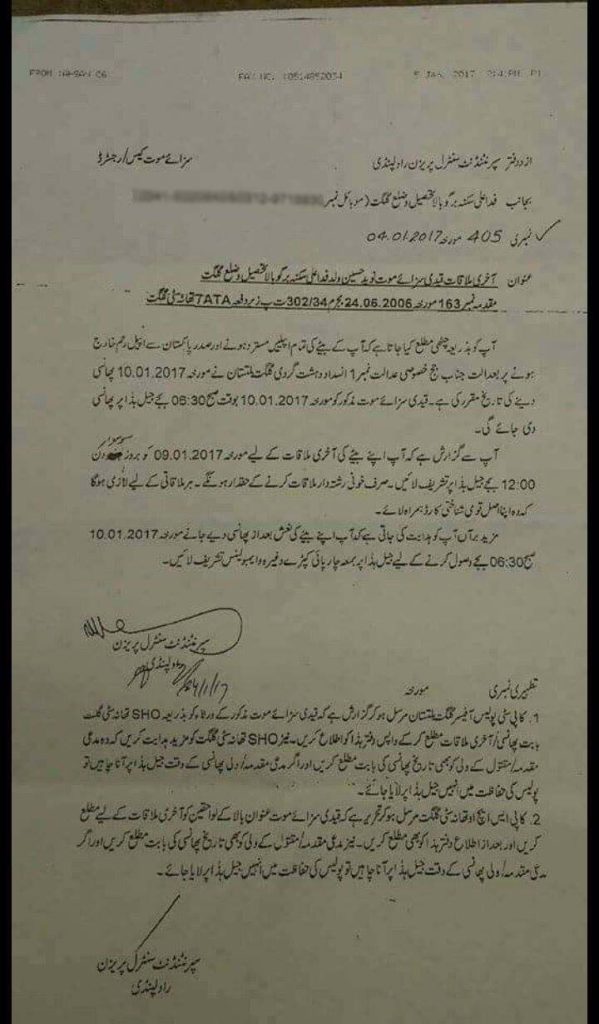 FROM
FAX NO. :0514852034
5 JAN. 2017 2:4 PM P1
از دفتر سپرنٹنڈنٹ سنٹرل پریزن راولپنڈی
سزائے موت کیس/رجسٹرڈ
بجانب فدا علی سکنہ برگو بالا تحصیل و ضلع گلگت (موبائل نمبر
نمبری 405 مورخہ 04.01.2017
عنوان آخری ملاقات قیدی سزائے موت نوید حسین ولد فدا علی سکنہ برگو بالا تحصیل و ضلع گلگت
مقدمہ نمبر 163 مورخہ 24.06.2006 بجرم 302/34 ت پ زیر دفعہ 7ATA تھانہ سٹی گلگت
آپ کو بذریعہ چٹھی مطلع کیا جاتا ہے کہ آپ کے بیٹے کی تمام اپیلیں مسترد ہونے اور صدر پاکستان سے اپیل رحم خارج
ہونے پر بعدالت جناب جج خصوصی عدالت نمبر 1 انسداد دہشت گردی گلگت بلتستان نے مورخہ 10.01.2017 پھانسی
دینے کی تاریخ مقرر کی ہے۔ قیدی سزائے موت مذکور کو مورخہ 10.01.2017 بوقت صبح 06:30 بجے جیل ہذا پر پھانسی
دی جائے گی۔
آپ سے گزارش ہے کہ آپ اپنے بیٹے کی آخری ملاقات کے لیے مورخہ 09.01.2017 کو بروز سوموار دن
12:00 بجے جیل ہذا پر تشریف لائیں۔ صرف خونی رشتہ دار ملاقات کرنے کے حقدار ہونگے۔ ہر ملاقاتی کے لیے لازمی ہوگا
کہ وہ اپنا اصل قومی شناختی کارڈ ہمراہ لائے۔
مزید برآں آپ کو ہدایت کی جاتی ہے کہ آپ اپنے بیٹے کی نعش بعد از پھانسی دیے جانے مورخہ 10.01.2017
صبح 06:30 بجے وصول کرنے کے لیے جیل ہذا پر بمعہ چارپائی کپڑے وغیرہ و ایمبولینس تشریف لائیں۔
سپرنٹنڈنٹ سنٹرل پریزن
راولپنڈی
4/1/17
تظہیری نمبری مورخہ
1. کاپی سٹی پولیس آفیسر گلگت بلتستان مرسل ہو کر گزارش ہے کہ قیدی سزائے موت مذکور کے ورثاء کو بذریعہ SHO تھانہ سٹی گلگت
بابت پھانسی/آخری ملاقات مطلع کر کے واپس دفتر ہذا کو اطلاع کریں۔ نیز SHO تھانہ سٹی گلگت کو مزید ہدایت کریں کہ وہ مدعی
مقدمہ/مقتول کے ولی کو بھی تاریخ پھانسی کی بابت مطلع کریں اور اگر مدعی مقدمہ/ولی پھانسی کے وقت جیل ہذا پر آنا چاہیں تو
پولیس کی حفاظت میں انہیں جیل ہذا پر لایا جائے۔
2. کاپی ایس ایچ او تھانہ سٹی گلگت مرسل ہو کر تحریر ہے کہ قیدی سزائے موت عنوان بالا کے لواحقین کو آخری ملاقات کے لیے مطلع
کریں اور بعد از اطلاع دفتر ہذا کو بھی مطلع کریں۔ نیز مدعی مقدمہ/مقتول کے ولی کو بھی تاریخ پھانسی کی بابت مطلع کریں اور اگر
مدعی مقدمہ/ولی پھانسی کے وقت جیل ہذا پر آنا چاہیں تو پولیس کی حفاظت میں انہیں جیل ہذا پر لایا جائے۔
سپرنٹنڈنٹ سنٹرل پریزن
راولپنڈی